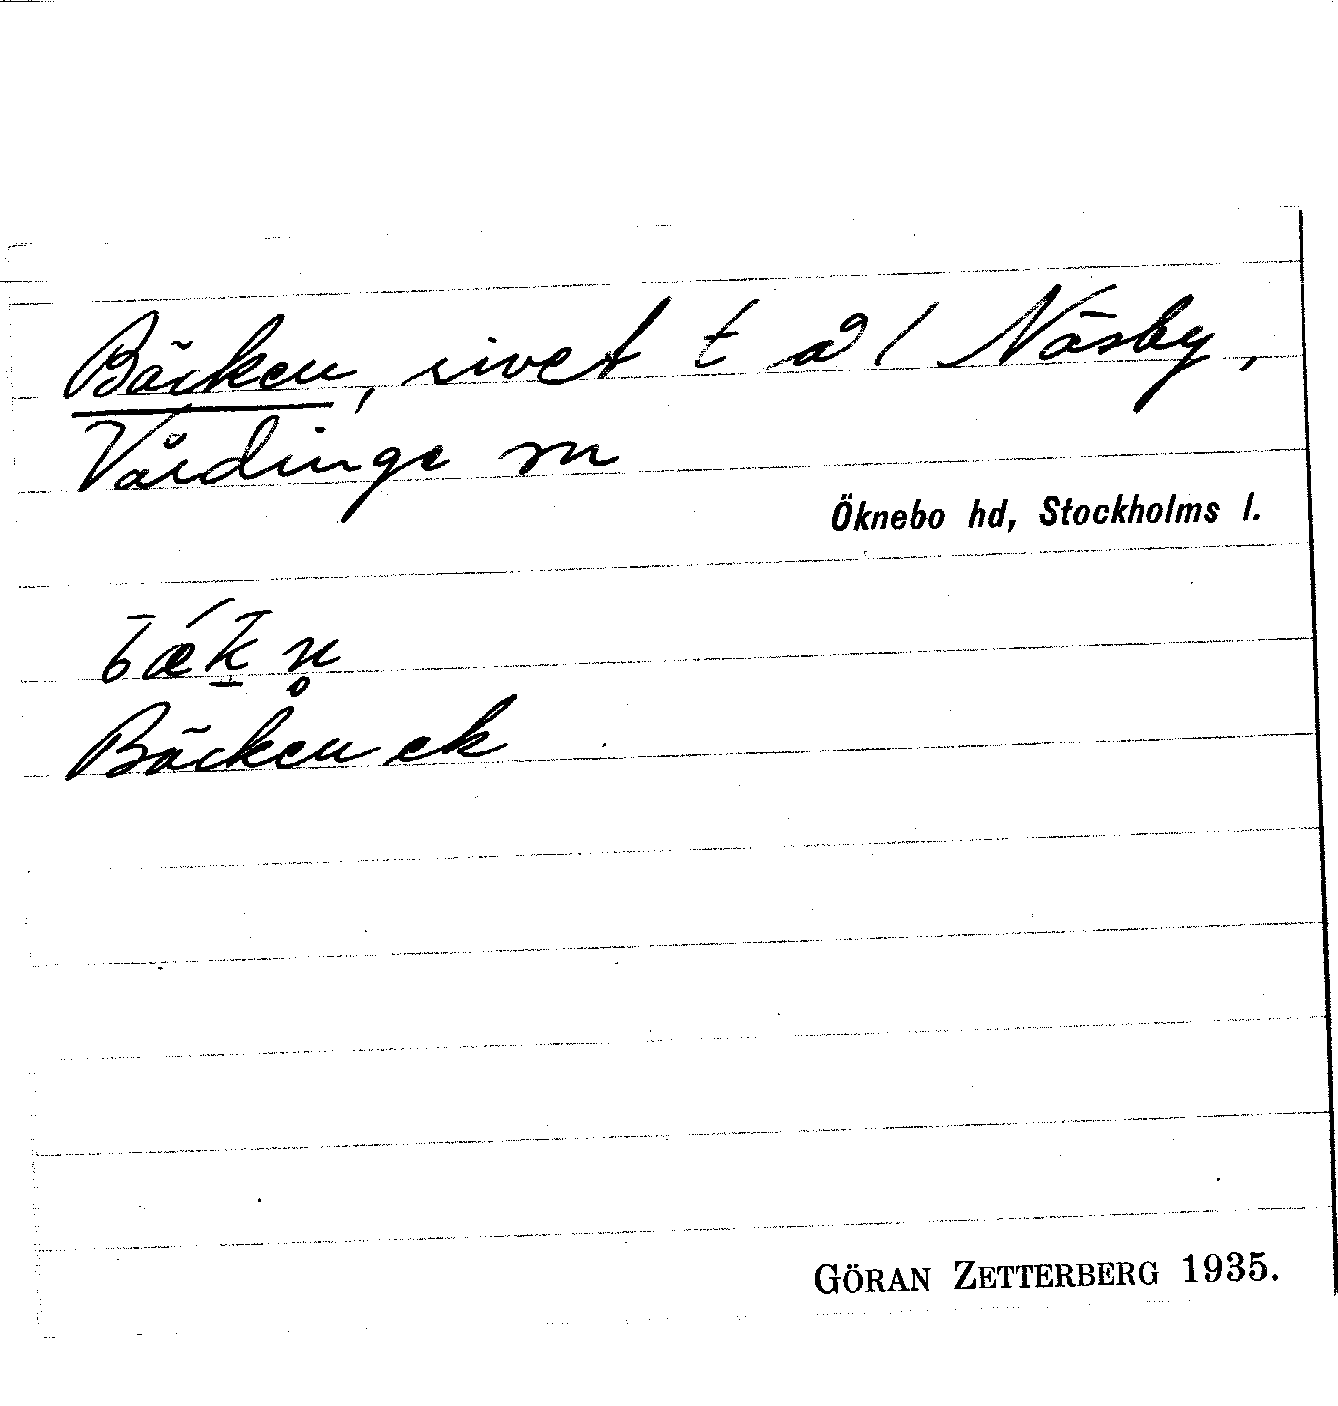 Bäcken, rivet t a l Näsby,
Vårdinge sn
Öknebo hd, Stockholms l.
bǽk̲n̥
Bäcken ek
GÖRAN ZETTERBERG 1935.